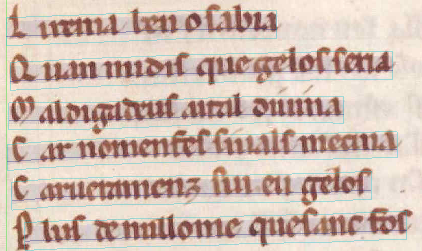 L irema ben o sabia
Q uan midis que gelos seria
M aldigadeus aital diuina
C ar nomentes siuals mecina
C arueramenz sui eu gelos
P lus de nullome quesanc fos